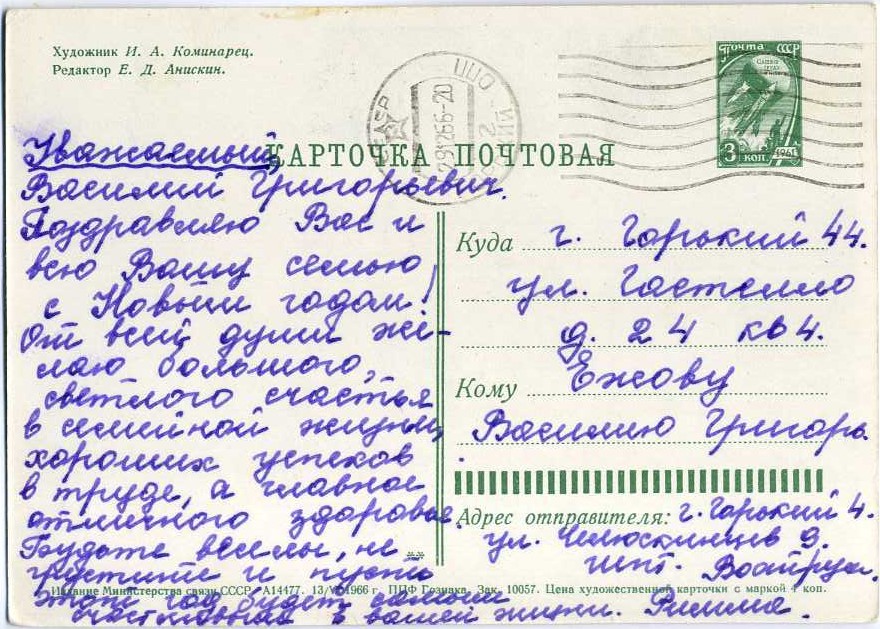 Художник И. А. Коминарец.
Редактор Е. Д. Анискин.
Почта СССР
3 коп.
1961
КАРТОЧКА ПОЧТОВАЯ
Уважаемый,
Василий Григорьевич.
Поздравляю Вас и
всю Вашу семью
с Новым годом!
От всей души же-
лаю большого,
светлого счастья
в семейной жизни,
хороших успехов
в труде, а главное
отличного здоровья.
Будьте веселы, не
грустите и пусть
этот год будет самым
счастливым в вашей жизни. Римма.
Куда г. Горький 44.
ул. Гастелло
д. 24 кв 4.
Кому Ежову
Василию Григорь.
Адрес отправителя: г. Горький 4.
ул. Челюскинцев 9.
Издание Министерства связи СССР. А14477. 1966 г. ППФ Гознака. Зак. 10057. Цена художественной карточки с маркой 4 коп.